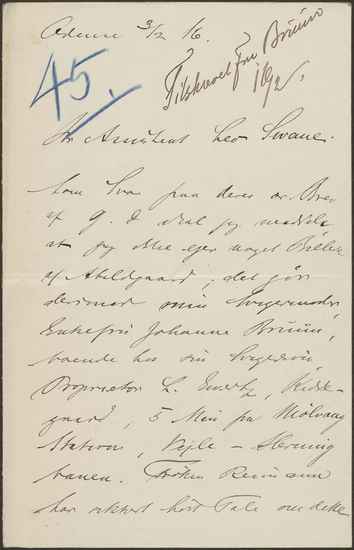 Odense 3/2 16.
Tilskrevet fru Brüün
16/2
45.
Hr Assistent Leo Swane.
Som Svar paa deres ær. Brev
af G. D skal jeg meddele,
at jeg ikke ejer noget Billede
af Abildgaard; det gör
derimod min Svigermoder
Enkefru Johanne Brüün,
boende hos sin Svigersön
Proprietær L.
gaard, 5 Min fra Mölvang
Station, Vejle - Herning
banen. Fröken
har sikkert hört Tale om dette